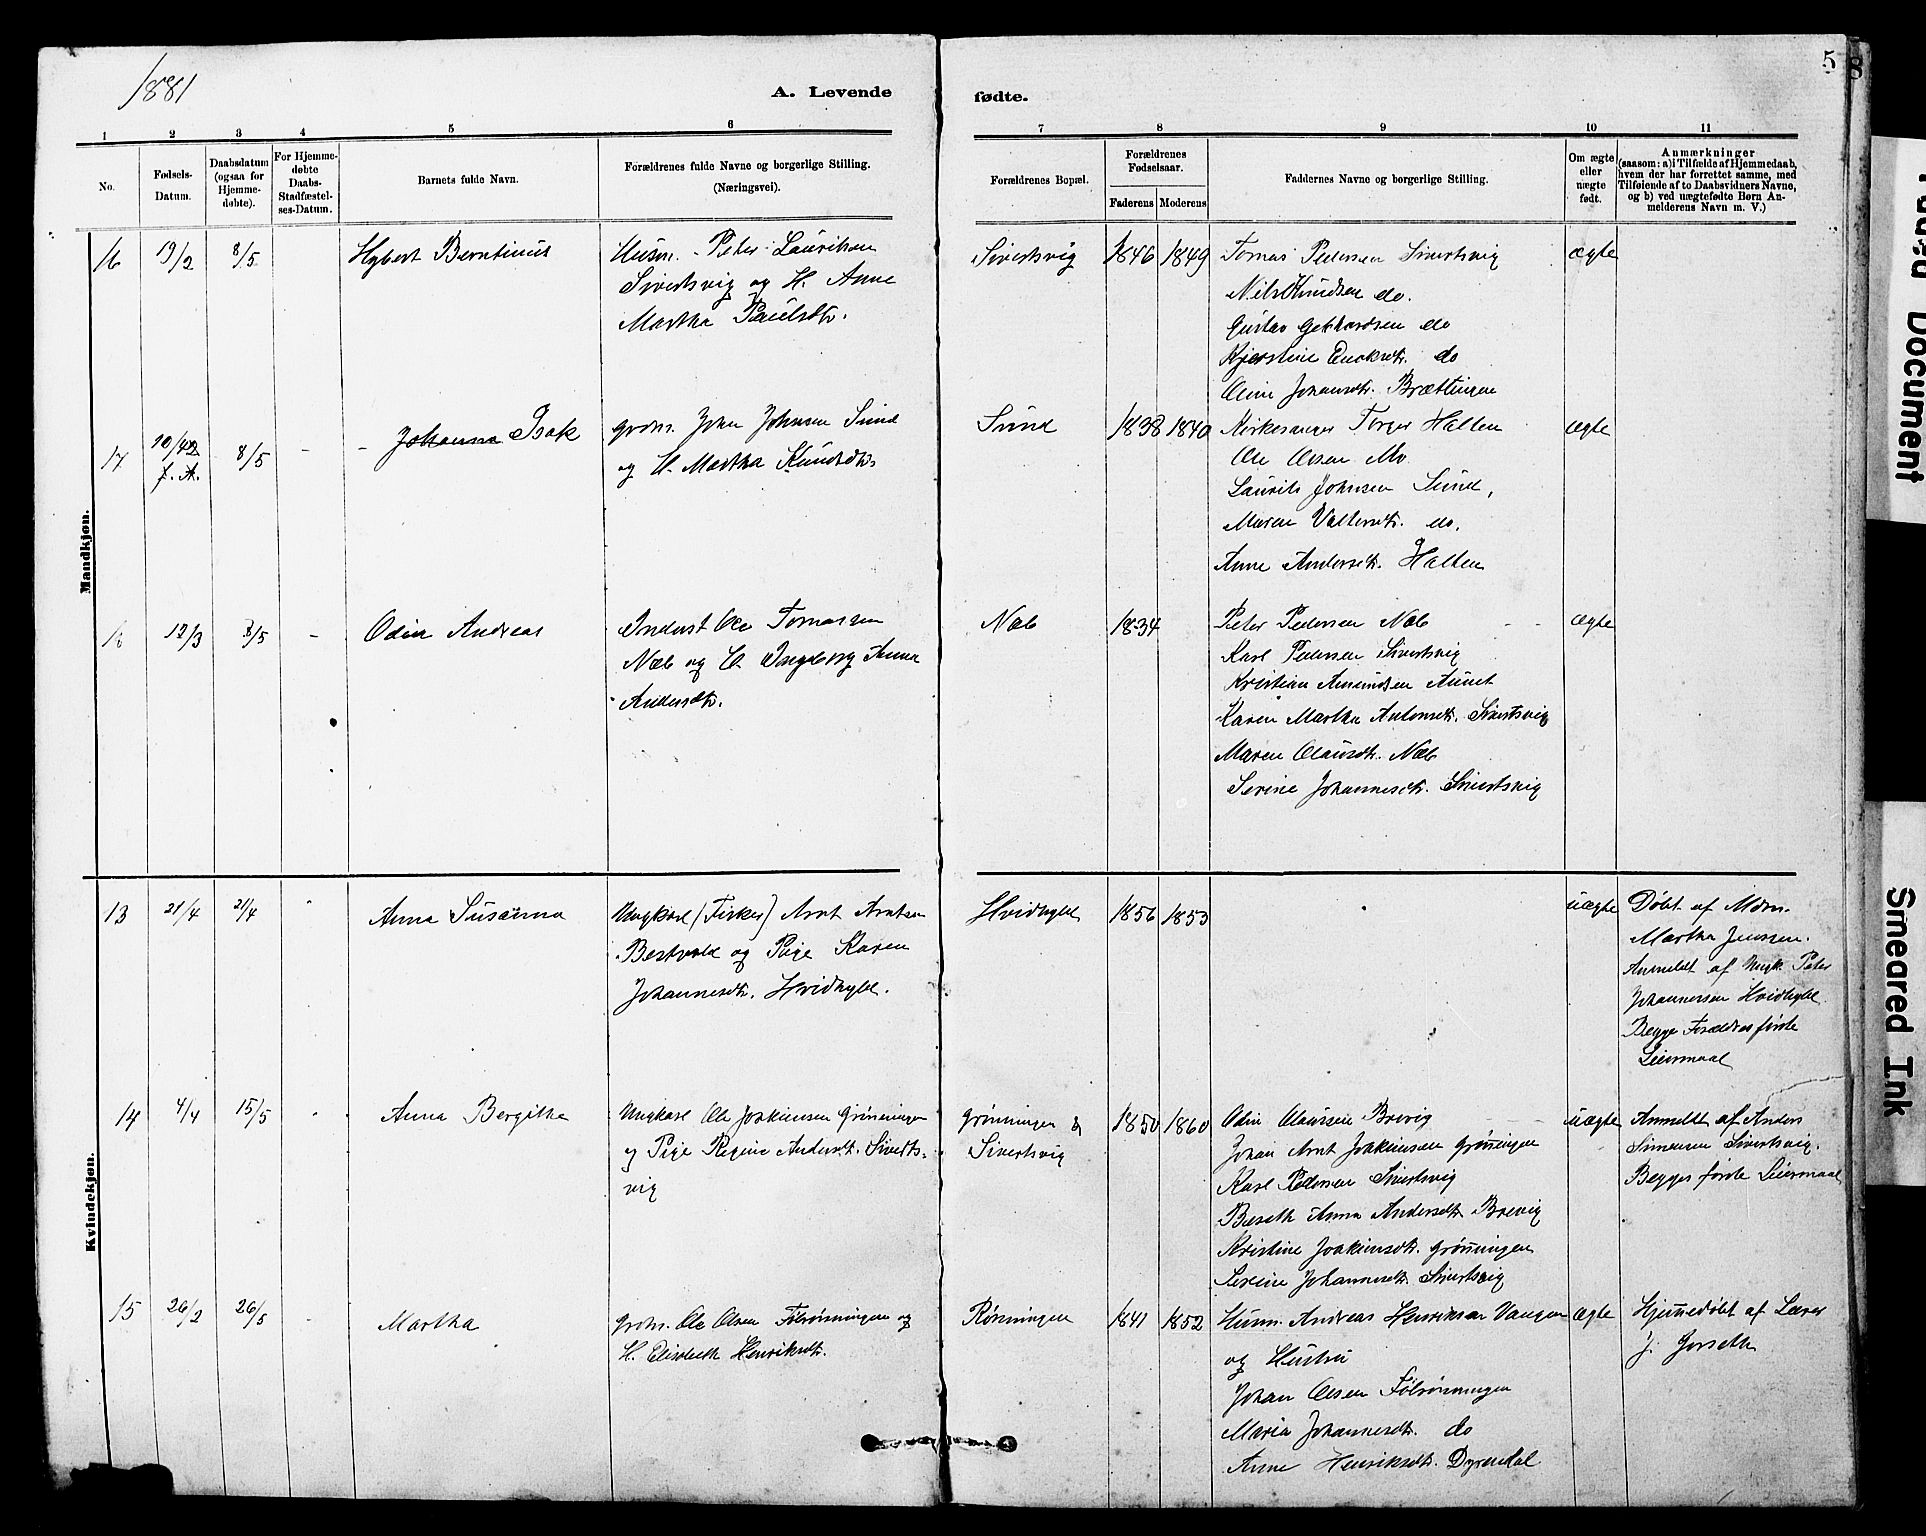 1881
A. Levende
fødte.
5
8
1 2 3 4 5 6 7 8 9 10 11
No.
Fødsels-Datum.
Daabsdatum (ogsaa for Hjemmedøbte).
For Hjemmedøbte Daabs-Stadfæstelses-Datum.
Barnets fulde Navn.
Forældrenes fulde Navne og borgerlige Stilling.
(Næringsvei).
Forældrenes Bopæl.
Forældrenes Fødselsaar.
Faderens Moderens
Faddernes Navne og borgerlige Stilling.
Om ægte eller uægte født.
Anmærkninger
(saasom: a) i Tilfælde af Hjemmedaab,
hvem der har forrettet samme, med
Tilføiende af to Daabsvidners Navne,
og b) ved uægtefødte Børn An-
melderens Navn m. V.)
Mandkjøn.
16 19/2 8/5 Hybert Berntinus
Husm. Peter Lauritsen
Sivertsvig og H. Anne
Martha Paulsdtr.
Sivertsvig 1846 1849
Tomas Pedersen Sivertsvig
Nils Knudsen do.
Gustav Gerhardsen do
Kjerstine Enoksdtr. do
Oline Johansdtr. Brættingen
ægte
17 f. A. 8/5 - - Johanna Isak
Grdm. John Johnsen Sund
og H. Martha Knudsdtr
Sund 1838 1840
Kirkesanger Torger Halten
Ole Olsen Mo
Laurits Johnsen Sund,
Maren Valtersdtr. do.
Anne Andersdtr. Halten
ægte
12/3 8/5 - Odin Andreas
Inderst Ole Tomassen
Næb og H. Ingeborg Anna
Andersdtr.
Næb 1834
Peter Pedersen Næb
Karl Pedersen Sivertsvig
Kristian Amundsen Aunet
Karen Martha Antonsdtr. Sivertsvig
Maren Olausdtr. Næb
Serine Johannesdtr. Sivertsvig
ægte
Kvindekjøn.
13 21/4 21/4 Anna Susanna
Ungkarl (Fisker) Arnt Arntsen
og Pige Karen
Johannesdtr. Hvidhyld.
Hvidhyld 1856 1853
uægte
Døbt af Mdm.
Martha Jenssen.
Anmeldt af Ungk. Peter
Johannessen Hvidhyld.
Begge Forældres første
Leiermaal
14 4/4 15/5 Anna Bergithe
Ungkarl Ole Joakimsen Grønningen
og Pige Regine Andersdt. Siverts-
vig
Grønningen &
Sivertsvig
1850 1860
Odin Olaussen Brevig
Johan Arnt Joakimsen Grønningen
Karl Pedersen Sivertsvig
Bereth Anna Andersdtr Brevig
Kristine Joakimsdtr. Grønningen
Serine Johannesdtr. Sivertsvig
uægte
Anmeldt af Anders
Simonsen Sivertsvig.
Begges første Leiermaal
15 26/2 26/5 - Martha
Grdm. Ole Olsen Følrønningen og
H. Elisabeth Henriksdtr.
Rønningen 1841 1852
Husm. Andreas Henriksen Vangen
og Hustru
Johan Olsen Følrønningen
Maria Johannesdtr. do
Anne Henriksdtr. Dyrendal
ægte
Hjemmedøbt af Lærer
J. Gorseth
Document
Smeared Ink